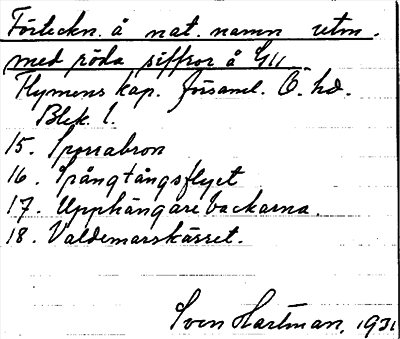 Förteckn. å nat. namn utm.
med röda siffror å GU
Flymens kap. församl. Ö. hd.
Blek. l.
15. Sporrabron
16. Spångtångsflyet
17. Upphängarebackarna.
18. Valdemarskärret.
Sven Hartman, 1931